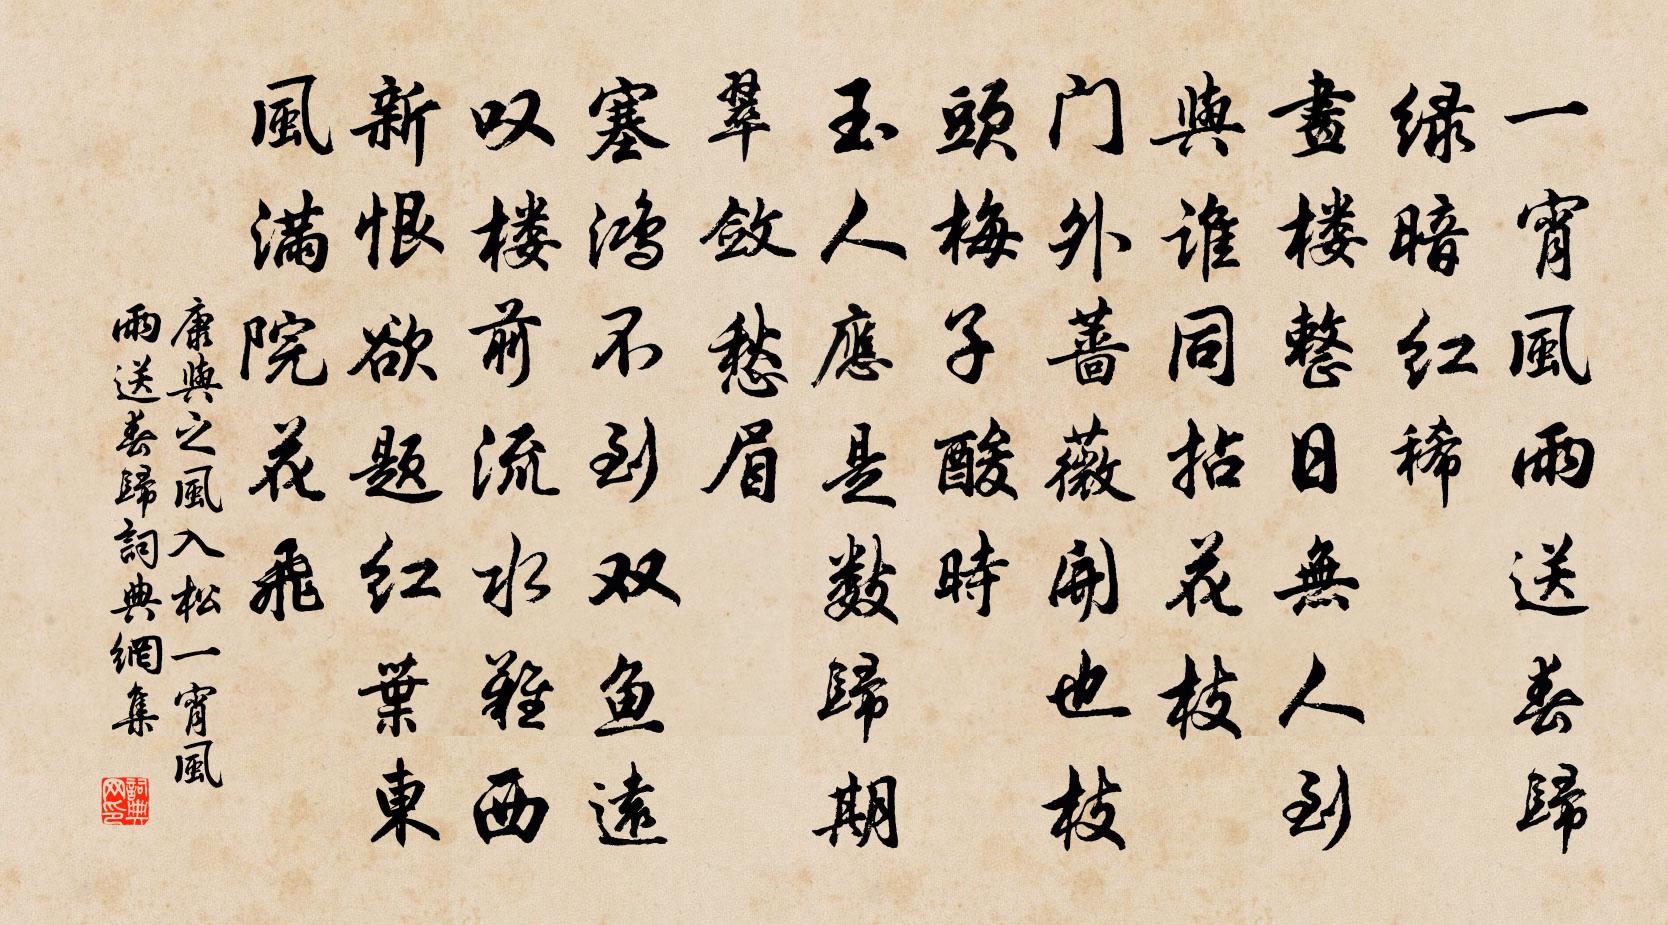 一宵風雨送春歸
绿暗红稀
畫楼整日無人到
與谁同拈花枝
门外蔷薇開也枝
頭梅子酸時
玉人應是数歸期
翠敛愁眉
塞鸿不到双鱼遠
叹楼前流水難西
新恨欲题红葉東
風满院花飛
康與之風入松一宵風
雨送春歸詞典網集
詞典
网印